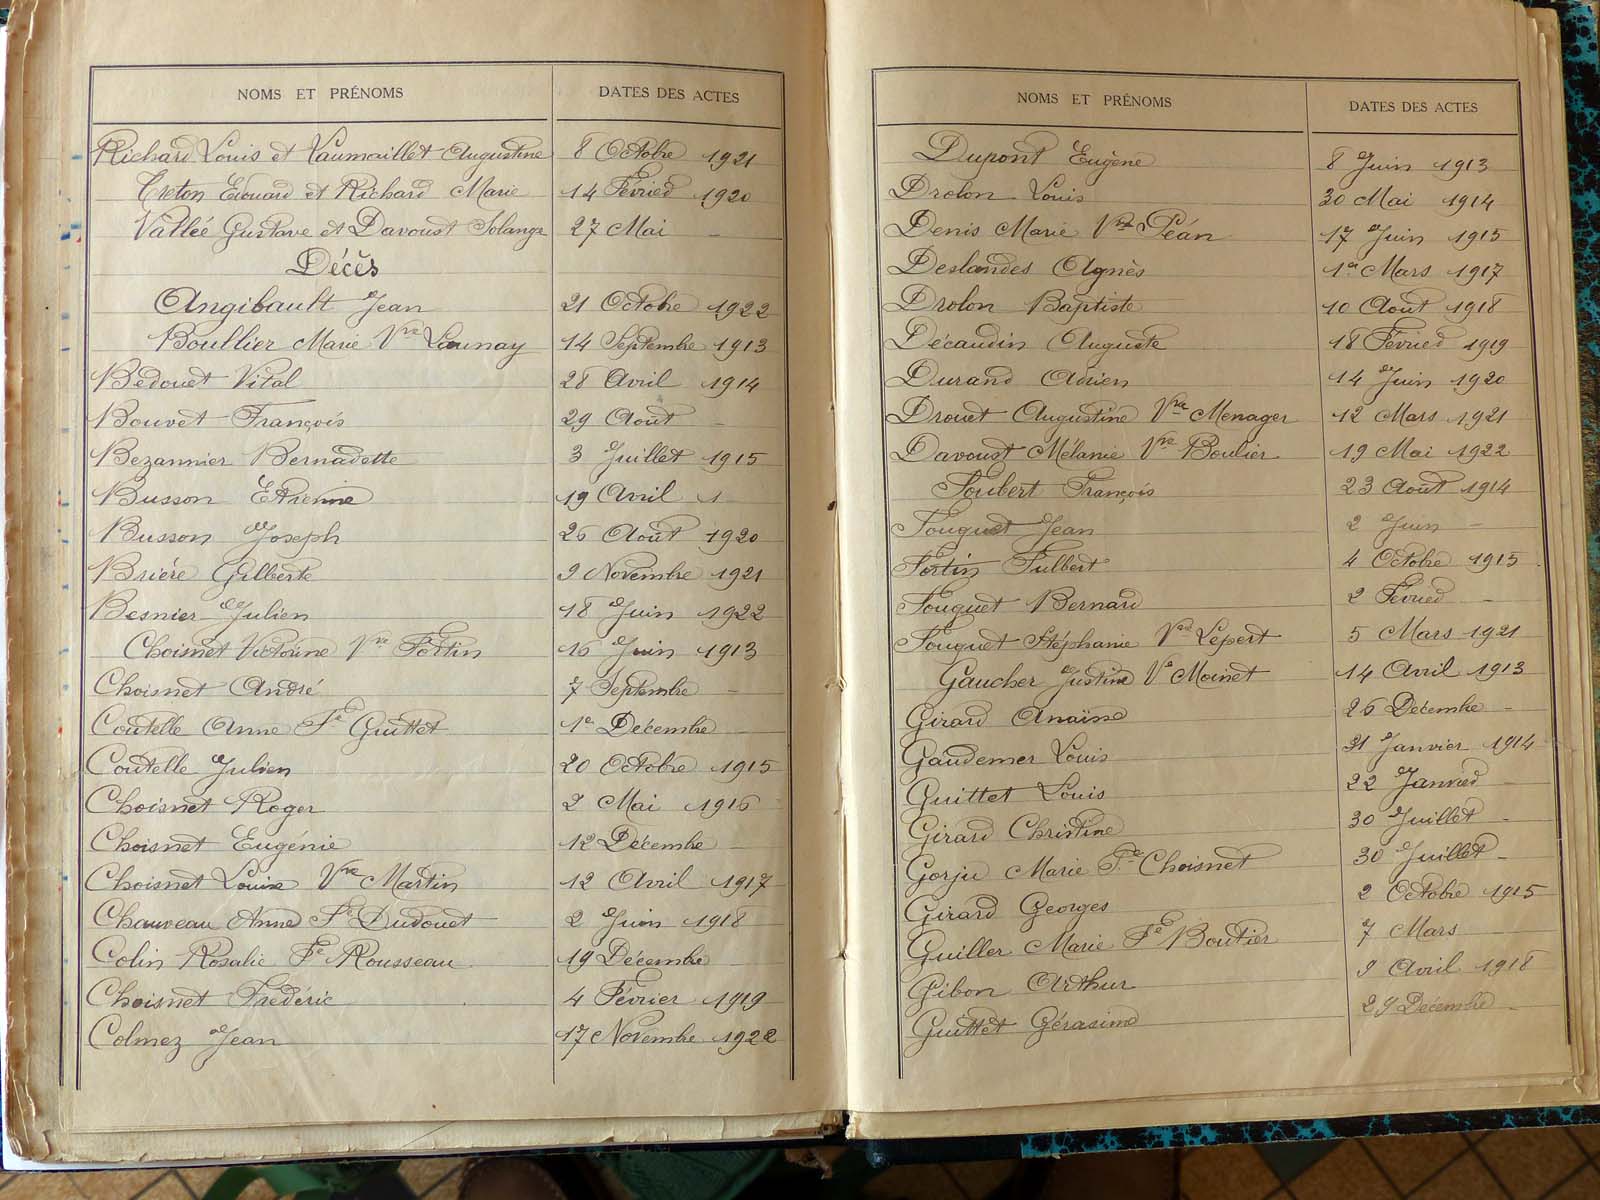 NOMS ET PRÉNOMS DATES DES ACTES
Richard Louis et Vaumaillet Augustine 8 Octobre 1921
Creton Edouard et Richard Marie 14 Février 1920
Vallée Gustave et Davoust Solange 27 Mai -
Décès
Angibault Jean 21 Octobre 1922
Boullier Marie Vve Launay 14 Septembre 1913
Bedouet Vital 28 Avril 1914
Bouvet François 29 Août -
Bezannier Bernadette 3 Juillet 1915
Busson Etienne 19 Avril
Busson Joseph 26 Août 1920
Brière Gilberte 9 Novembre 1921
Besnier Julien 18 Juin 1922
Choisnet Victorine Vve Fortin 16 Juin 1913
Choisnet André 7 Septembre -
Coutelle Anne Fe Guittet 1er Décembre
Coutelle Julien 20 Octobre 1915
Choisnet Roger 2 Mai 1916
Choisnet Eugénie 12 Décembre -
Choisnet Louise Vve Martin 12 Avril 1917
Chauveau Anne Fe Dudouet 2 Juin 1918
Colin Rosalie Fe Rousseau 19 Décembre
Choisnet Frédéric 4 Février 1919
Colmez Jean 17 Novembre 1922
NOMS ET PRÉNOMS DATES DES ACTES
Dupont Eugène 8 Juin 1913
Drolon Louis 30 Mai 1914
Denis Marie Vve Péan 17 Juin 1915
Deslandes Agnès 1er Mars 1917
Drolon Baptiste 10 Août 1918
Décaudin Auguste 18 Février 1919
Durand Adrien 14 Juin 1920
Drouet Augustine Vve Menager 12 Mars 1921
Davoust Mélanie Vve Boulier 19 Mai 1922
Foubert François 23 Août 1914
Fouquet Jean 2 Juin -
Fortin Fulbert 4 Octobre 1915
Fouquet Bernard 2 Février -
Fouquet Stéphanie Vve Lepert 5 Mars 1921
Gaucher Justine Ve Moinet 14 Avril 1913
Girard Anaïse 26 Décembre -
Gaudemer Louis 31 Janvier 1914
Guittet Louis 22 Janvier -
Girard Christine 30 Juillet -
Gorju Marie Fe Choisnet 30 Juillet -
Girard Georges 2 Octobre 1915
Guiller Marie Fe Boutier 7 Mars -
Gibon Arthur 9 Avril 1918
Guittet Gérasime 29 Décembre -